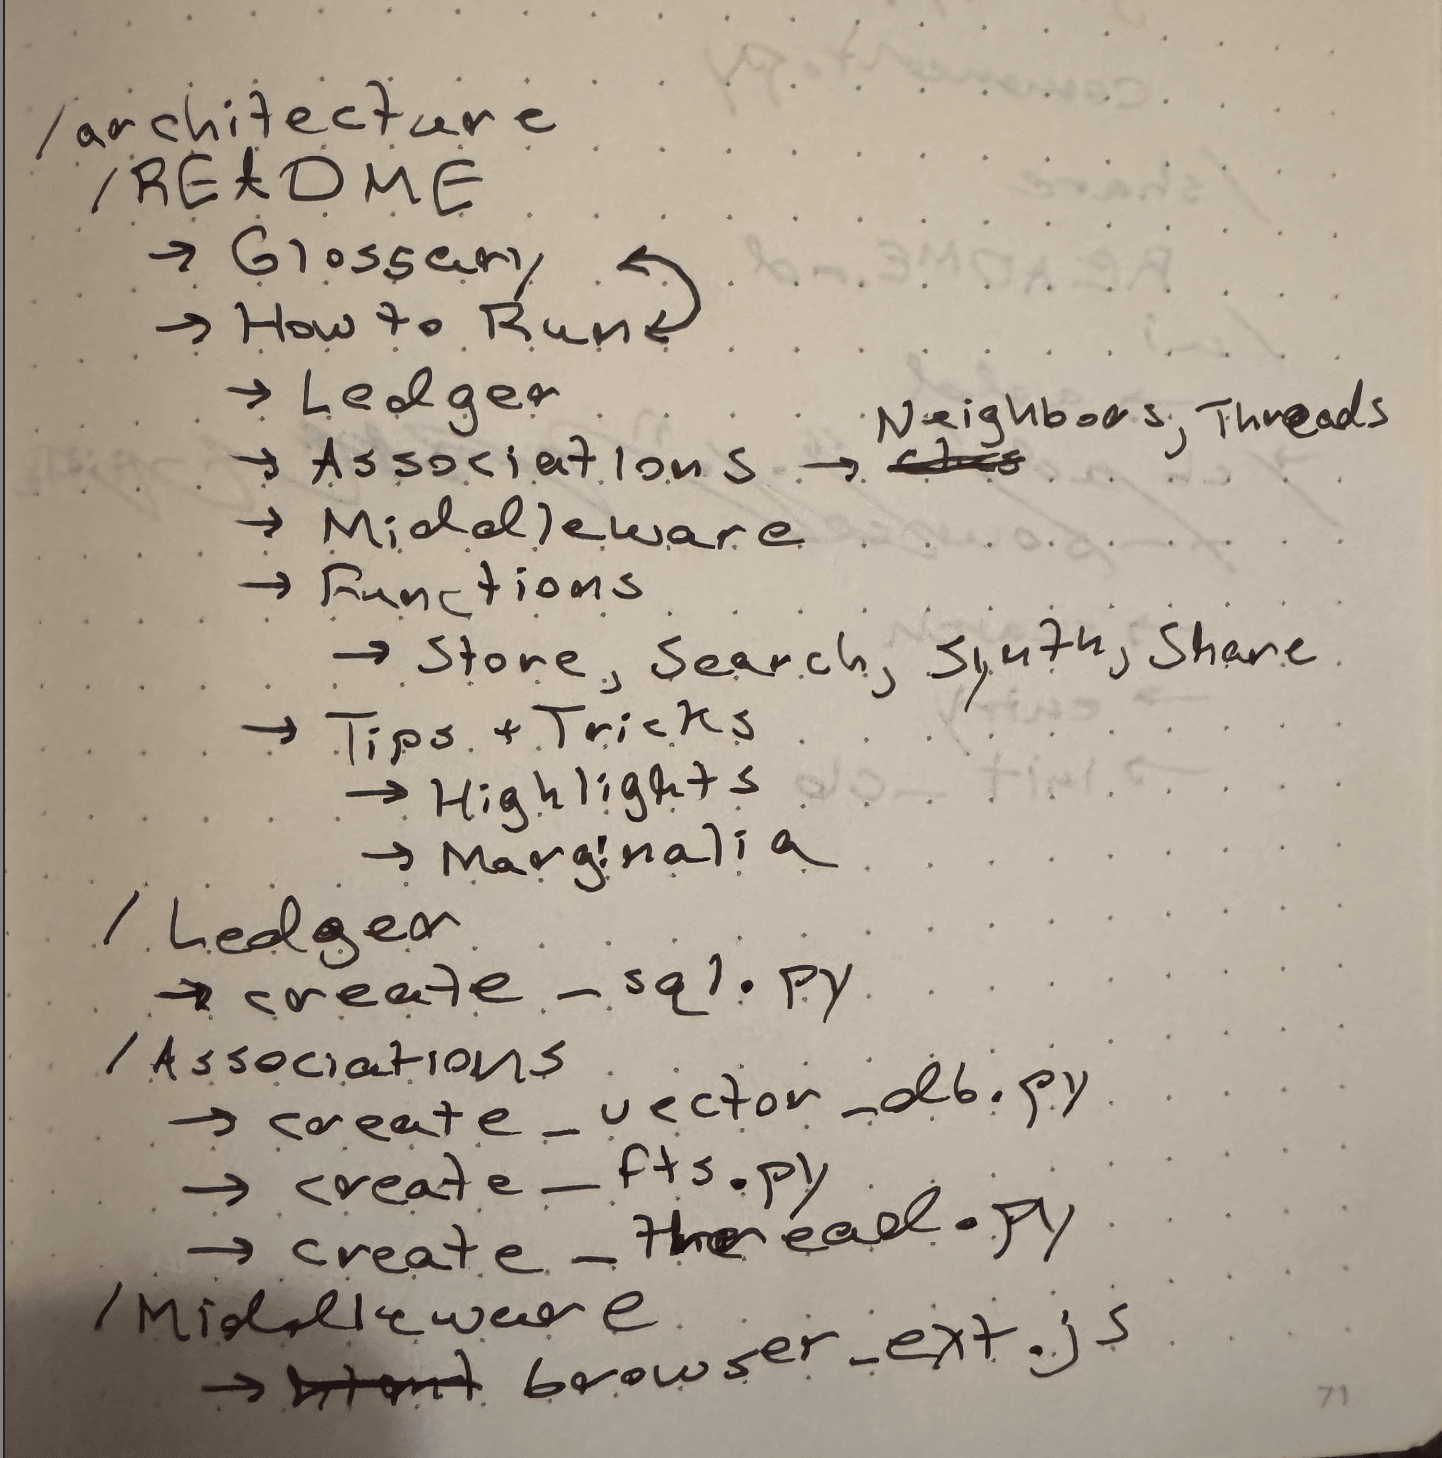 /architecture
/README
→ Glossary
→ How to Run
→ Ledger
→ Associations → Neighbors, Threads
→ Middleware
→ Functions
→ Store, Search, Synth, Share
→ Tips + Tricks
→ Highlights
→ Marginalia
/Ledger
→ create_sql.py
/Associations
→ create_vector_db.py
→ create_fts.py
→ create_thread.py
/Middleware
→ browser_ext.js
71